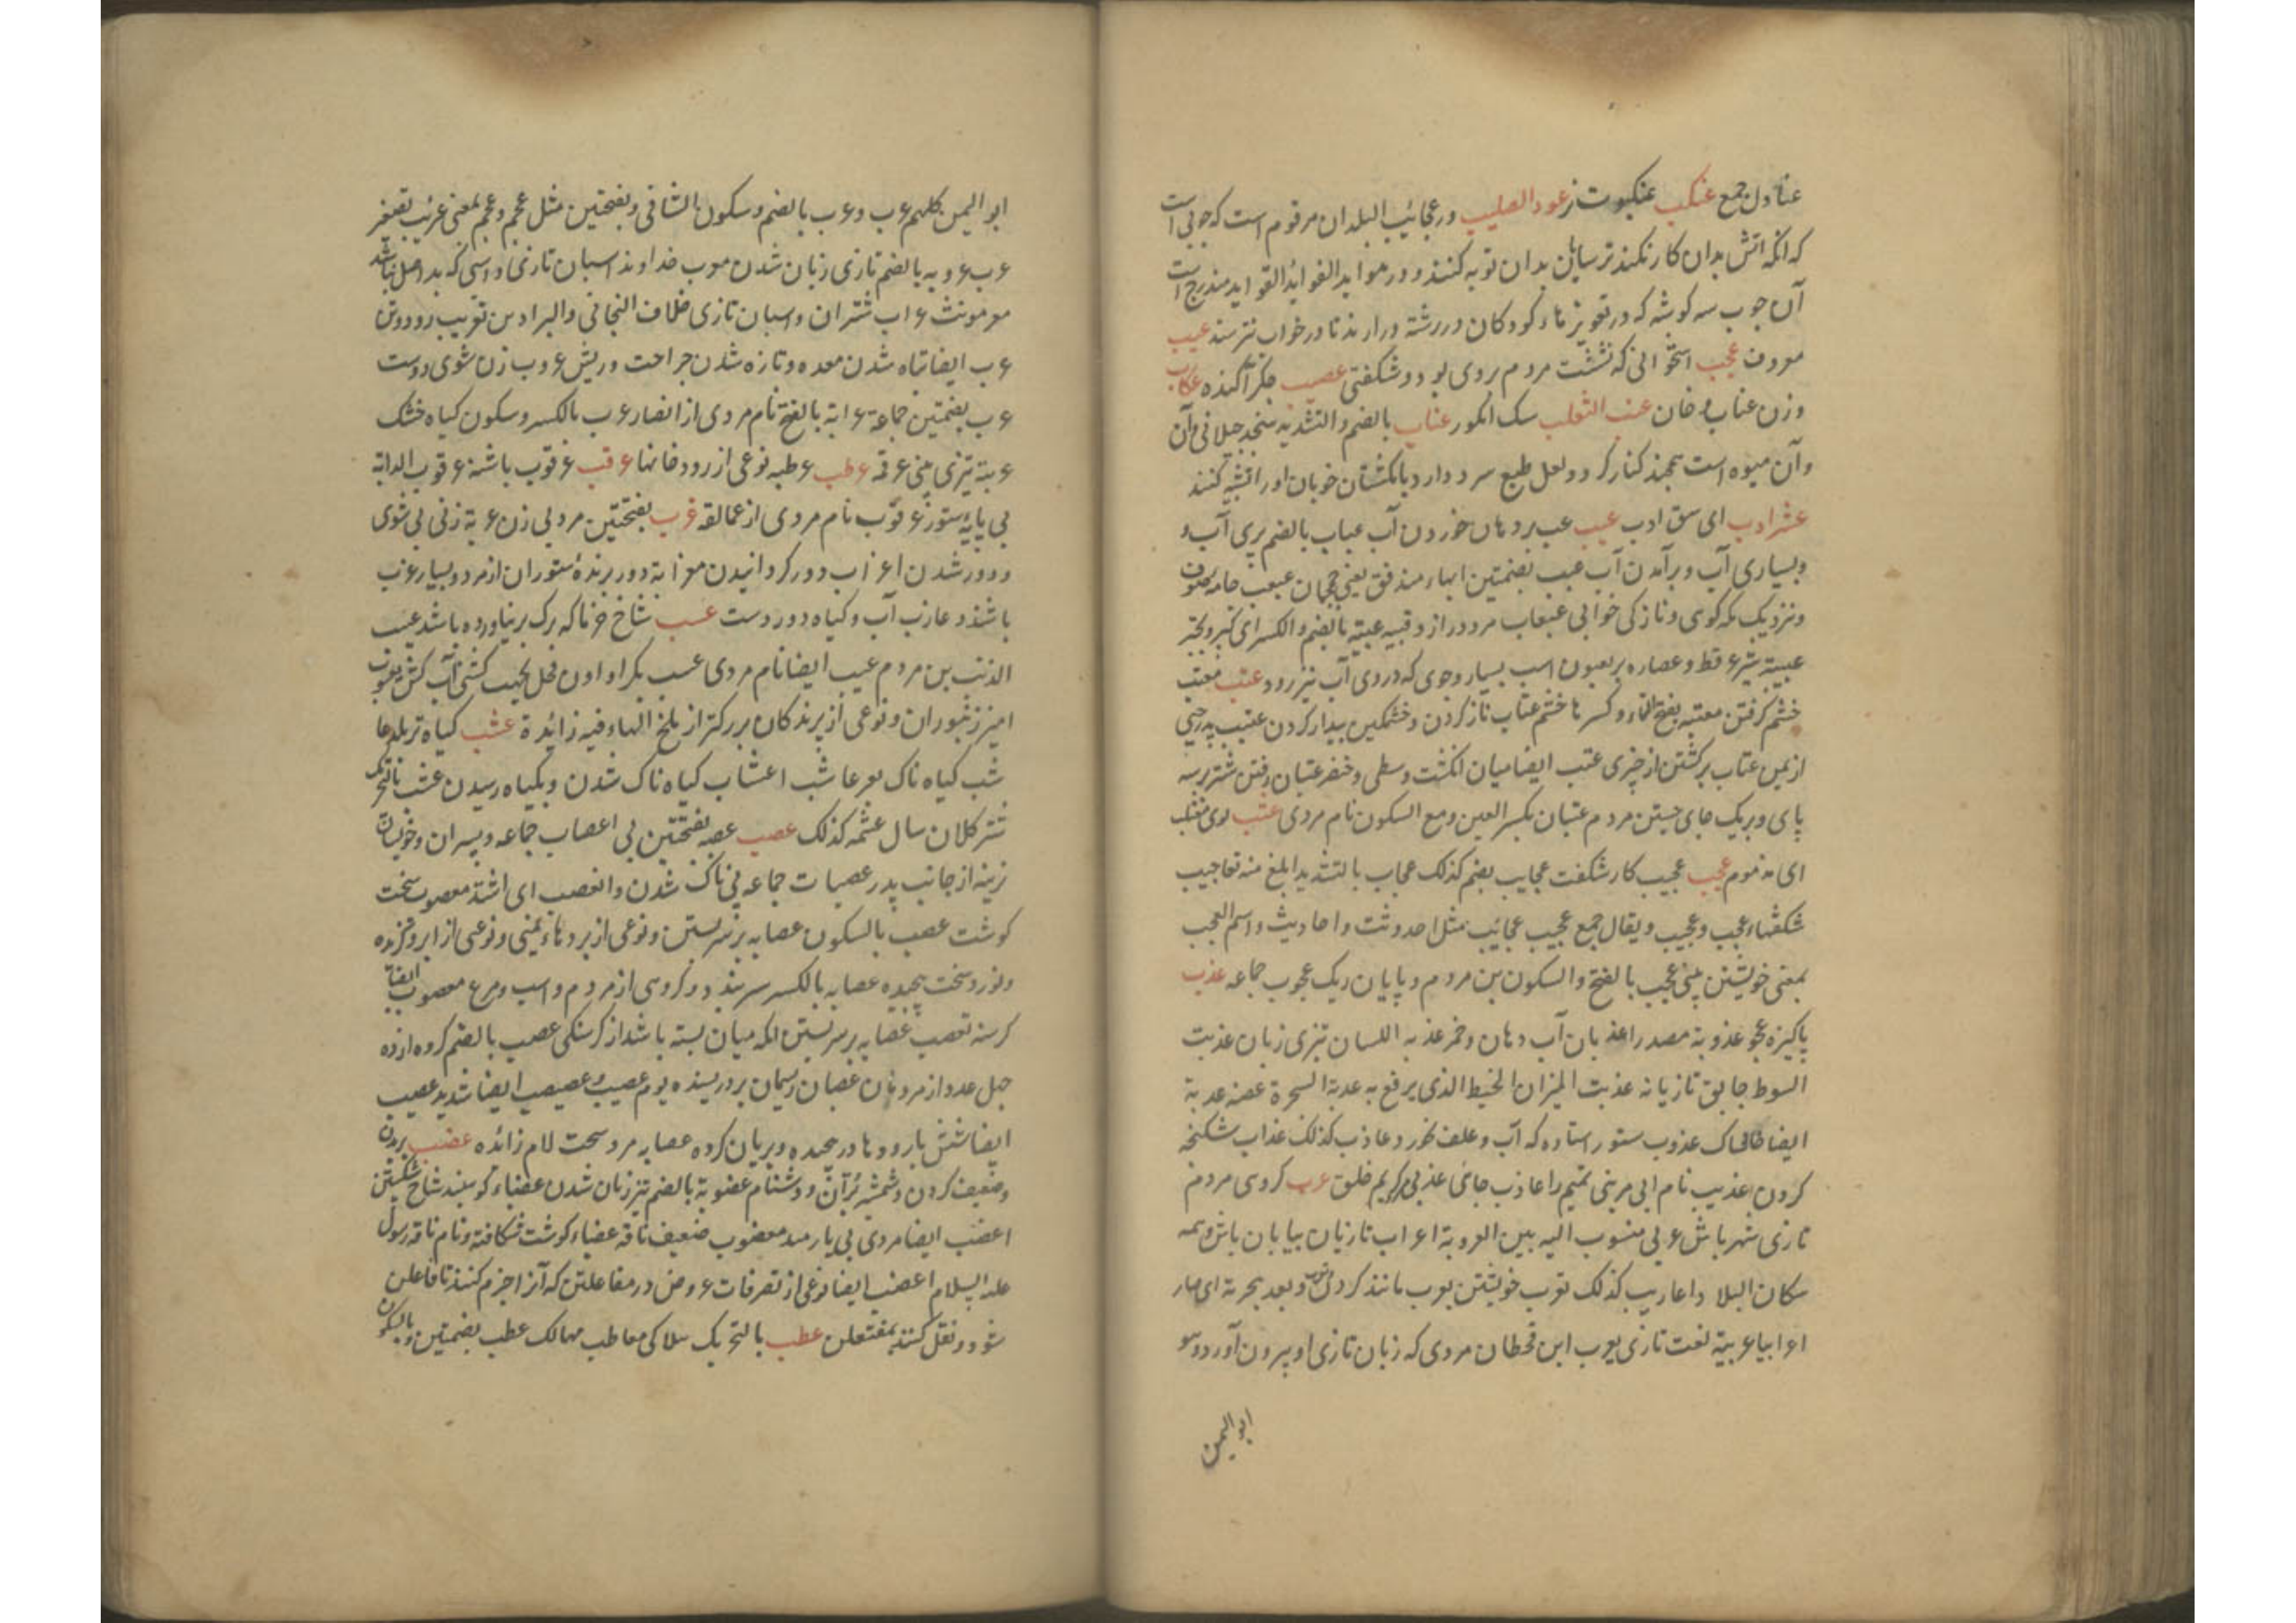 عنادل جمع عنکب عنکبوت نر عود الصلیب در عجائب البلدان مرقوم است که چوبی است
که انکه اتش بدان کار نکند ترسایان بدان توبه کنند و در مواید الفوائد القواید مندرج است
آن چوب سه کوشه که در تعویزهاء کودکان در رشته درارند تا در خواب نترسند عیب
معروف عجب استخوانی که نشست مردم بروی بود و شکفتی عصیب جکر آکنده عکاب
وزن عناب دخان عنب الثعلب سک انکور عناب بالضم والتشدید سنجد جیلانی وآن
وآن میوه است همچند کنار کرد و لعل طبع سرد دارد بانکشتان خوبان او را تشبیه کنند
عشر ادب ای سق ادب عبب عب بر دهان خوردن آب عباب بالضم پری آب و
وبسیاری آب وبرآمدن آب عبب بضمتین ابهاء مندفق یعنی جهان عبعب جامه صوف
ونزدیک مکوی ونازکی خوابی عبعاب مرد دراز و قبیه عبیة بالضم والکسر ای کبر وتجبر
عبیبة شرء قط و عصاره یعبوب اسب بسیار و جوی که در وی آب تیز رود عتب معتب
خشم کرفتن معتبه بفتح التاء و کسرها خشم عتاب ناز کردن و خشمکین بیدار کردن عتیب پدر حیی
از یمن عتاب برکشتن از چیزی عتب ایضا میان انکشت وسطی و خنصر عتبان رفتن شتر بر سه
پای و بریک جای جستن مردم عتبان بکسر العین ومع السکون نام مردی عتب
ای مذموم عجب عجیب کار شکفت عجایب بضم کذلک عجاب بالتشدید ابلغ منه تعاجیب
شکفتهاء عجب وعجیب ویقال جمع عجیب عجائب مثل احدوثت واحادیث واسم العجب
بمعنی خویشتن بینی عجب بالفتح والسکون بن مردم و پایان ریک عجوب جماعه عذب
پاکیزه عجو عذوبة مصدر اعذبان آب دهان و خمر عذبه اللسان تیزی زبان عذبت
السوط جابق تازیانه عذبت المیزان الخیط الذی یرفع به عدبة الشجرة غصنه عدبة
ایضا خاشاک عذوب ستور استاده که آب و علف نخورد عاذب کذلک عذاب شکنجه
کردن عذیب نام ابی مر بنی تمیم را عاذب جائی عذبی کریم خلق عرب کروهی مردم
تازی شهر باش عربی منسوب الیه بین العروبة اعراب تازیان بیابان باش وهمه
سکان البلاد اعاریب کذلک تعرب خویشتن بعرب مانند کردن و بعد بجرته ای صار
اعرابیا عربیة لغت تازی یعرب ابن قحطان مردی که زبان تازی او بیرون آورد وهو
ابو الیمن
ابو الیمن کلهم عرب وعرب بالضم وسکون الثانی وبفتحتین مثل عجم وعجم بمعنی عریب تصغیر
عرب عروبه بالضم تازی زبان شدن معرب خداوند اسبان تازی و اسی که بد اصل نباشد
معر مونث عراب شتران واسبان تازی خلاف النجاتی والبراذین تعریب رودوش
عرب ایضا تباه شدن معده وتازه شدن جراحت وریش عروب زن شوی دوست
عرب بضمتین جماعة عرابة بالفتح نام مردی از انصار عرب بالکسر وسکون کیاه خشک
عربة تیزی بینی عرقه عرطب عرطبه نوعی از رودخانها عرقب عرقوب باشنه عرقوب الدابة
پی پایه ستور عرقوب نام مردی از عمالقه عزب بفتحتین مرد بی زن عزبة زنی بی شوی
ودور شدن اعزاب دور کردانیدن معزابة دور برنده ستوران از مرد و بسیار عزب
باشند و عازب آب وکیاه دور دست عسب شاخ خرما که برک بر نیاورده باشد عیب
الذنب بن مردم عیب ایضا نام مردی عسب بکرا دادن فحل بجهت کشتی آب کش یعسوب
امیر زنبوران ونوعی از پرندکان بزرکتر از ملخ الیاء فیه زائدة عشب کیاه تر بلد عا
شب کیاه ناک بعر عاشب اعشاب کیاه ناک شدن وبکیاه رسیدن عشب بالتحریک
شتر کلان سال عشمه کذلک عصب عصبه بفتحتین پی اعصاب جماعه و پسران وخویشان
نرینه از جانب پدر عصبات جماعه پی ناک شدن وانعصب ای اشتد معصوب سخت
کوشت عصب بالسکون عصابه بر سر بستن ونوعی از بردهاء یمنی ونوعی از ابر و کزنده
ونورد سخت پیچیده عصابه بالکسر سربند و کروهی از مردم و اسب ومرغ معصوب ایضا
کرسنه تعصب عصابه بر سر بستن انکه میان بسته باشد از کرسنکی عصب بالضم کروه از ده
چهل عدد از مردمان عصبان ریسمان بر دریسنده یوم عصیب و عصبصب ایضا شدید عصیب
ایضا شش بارودها در پیچیده و بریان کرده عصابه مرد سخت لام زائده عضب بریدن
وضعیف کردن وشمشیر برآن و دشنام عضوبة بالضم تیز زبان شدن عضباء کوسفند شاخ شکستن
اعضب ایضا مردی بی یارمند معضوب ضعیف ناقه عضباء کوشت شکافته ونام ناقه رسول
علیه السلام اعضب ایضا نوعی از تصرفات عروض در مفاعلتن که آنرا خرم کنند تا فاعلن
شود ونقل کنند بمفتعلن عطب بالتحریک هلاکی معاطب مهالک عطب بضمتین وبالسکون